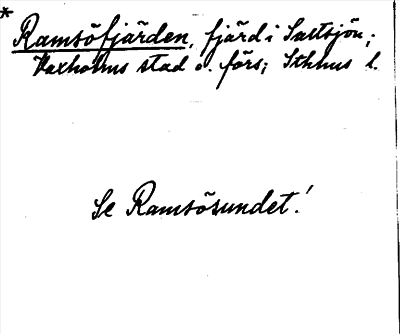 * Ramsöfjärden, fjärd i Saltsjön;
Vaxholms stad o. förs; Sthlms l.
Se Ramsösundet!